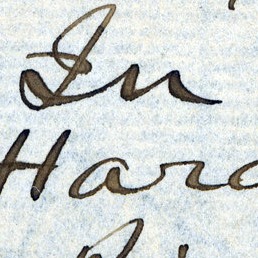 In
Haro